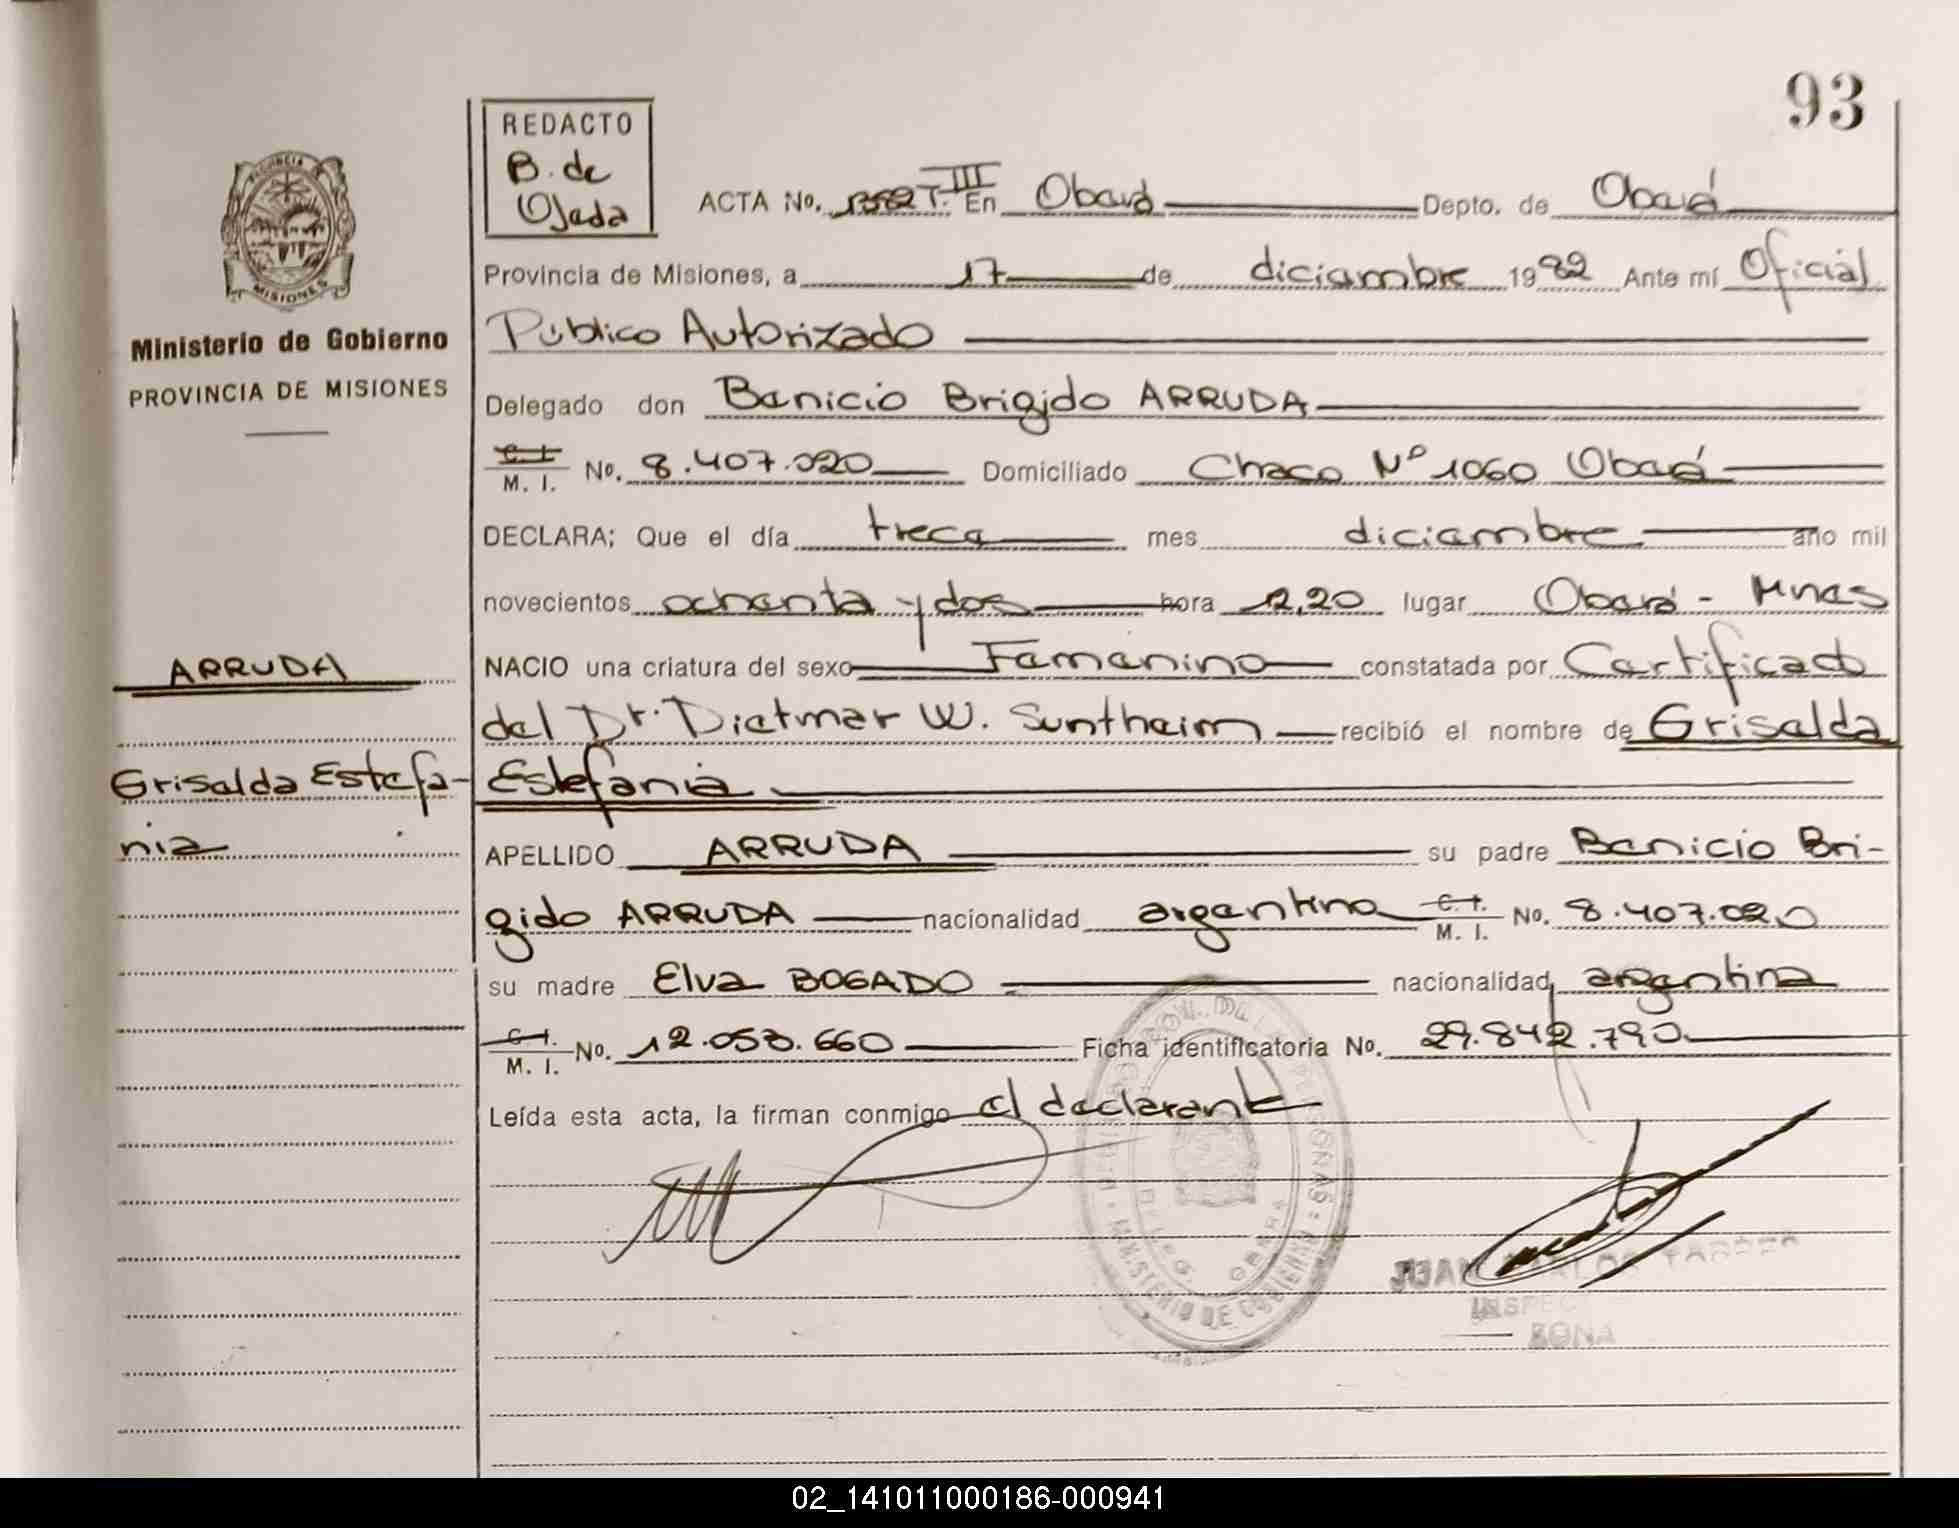 93
REDACTO
B. de
Ojeda
ACTA No. 1382 T. III En Oberá Depto. de Oberá
Provincia de Misiones, a 17 de diciembre 1982 Ante mí Oficial
Público Autorizado
Ministerio de Gobierno
PROVINCIA DE MISIONES
Delegado don Benicio Brigido ARRUDA
C. I. M. I. No. 8.407.020 Domiciliado Chaco Nº 1060 Oberá
DECLARA; Que el día trece mes diciembre año mil
novecientos ochenta y dos hora 12,20 lugar Oberá - Mnes
ARRUDA
NACIO una criatura del sexo Femenino constatada por Certificado
del Dr. Dietmar W. Suntheim recibió el nombre de Griselda
Griselda Estefa-
nia
Estefania
APELLIDO ARRUDA su padre Benicio Bri-
gido ARRUDA nacionalidad argentino C. I. M. I. No. 8.407.020
su madre Elva BOGADO nacionalidad argentina
C. I. M. I. No. 12.053.660 Ficha identificatoria No. 29.842.790
Leída esta acta, la firman conmigo el declarante
MINISTERIO DE GOBIERNO
DELEG. OBERA
ZONA
02_141011000186-000941